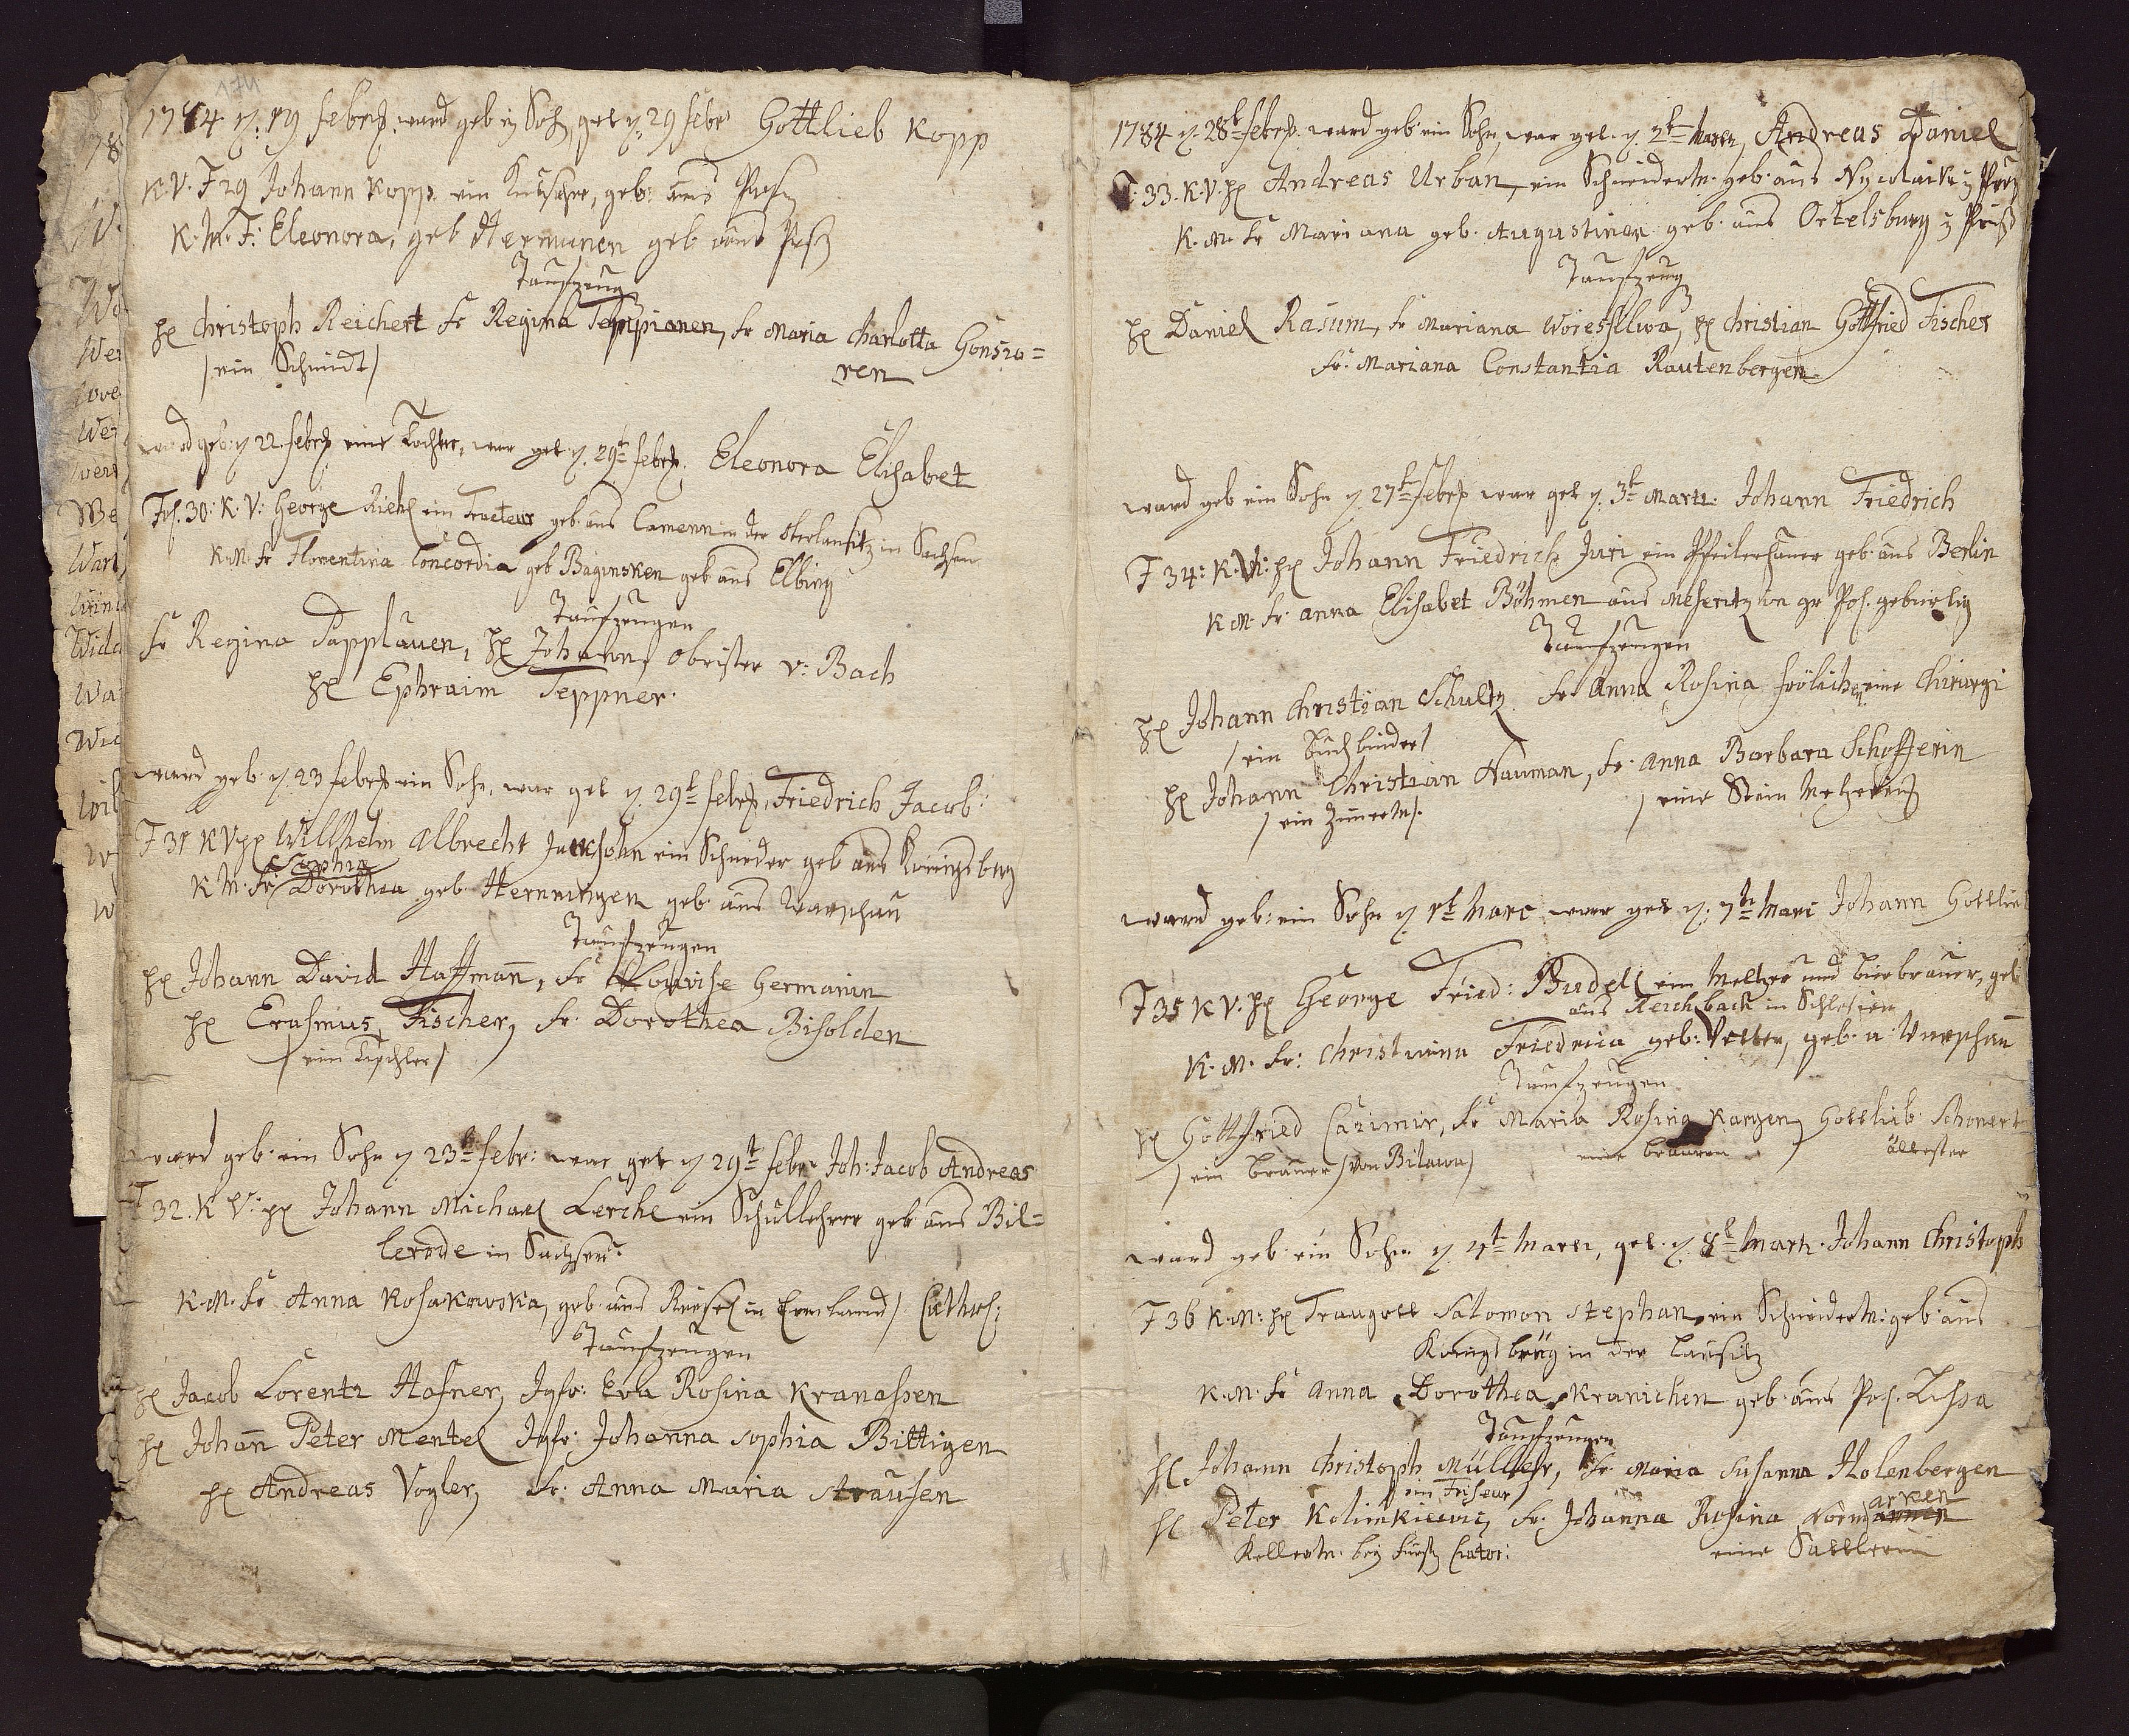 1784 d: 19 Febr. ward geb ein Sohn get d. 29 Febr Gottlieb Kopp
K.V. F 29 Johann Kopp ein Kutscher, geb: aus
K.M. F: Eleonora, geb Hermanen geb aus
Taufzeug
H Christoph Reichert Fr Regina Teppianen, Fr Maria Charlotta Gonsio=
/ein Schmidt/ ren
ward geb: d 22. Febr eine Tochter, war get d. 29t Febr. Eleonora Elisabet
30: K.V: George Riehl ein Tracteur geb aus Camenn in der Oberlausitz in Sachsen
K.M. Fr Florentina Concordia geb Baginsken geb aus Elbing
Taufzeugen
Fr Regina Papplauen, H Johann Obrister v: Bach
H Ephraim Teppner.
ward geb. d 23 Febr ein Sohn, war get d. 29t Febr, Friedrich Jacob
F 31 K V H Willhelm Albrecht Jacksohn ein Schneider geb aus Königsberg
Sophia
K M. Fr Dorothea geb. Hernningen geb aus Warschau
Taufzeugen
H Johann David Haffmann, Fr Louvise Germanin
H Erasmus Fischer, Fr. Dorothea Bisolden
/ein Tischler/
ward geb. ein Sohn d 23t Febr: war get d 29t Febr Joh: Jacob Andreas
F 32. K V: H Johann Michael Lerche ein Schullehrer geb aus Bil=
lerode in Sachsen.
K.M. Fr Anna Kosakowska, geb. aus Ressel in Ermland/ Cathol:
Taufzeugen
H Jacob Lorentz Hafner, Jgfr: Eva Rosina Kranassen
H Johann Peter Mentel Jgfr: Johanna Sophia Bittigen
H Andreas Vogler, Fr. Anna Maria Strausen
1784 d. 28t Febr. ward geb: ein Sohn, war get. d. 2t Martz, Andreas Daniel
F: 33. K.V. H Andreas Urban, ein Schneiderm. geb: aus Nycolaiki
K.M. Fr Mariana geb. Augustinen geb. aus Ortelsburg
Taufzeug
H Daniel Rasum, Fr Mariana H Christian Gottfried Fischer
Fr. Mariana Constantia Rautenbergen
ward geb ein Sohn d. 27t Febr war get d. 3t Martz. Johann Friedrich
F 34: K.V: H Johann Friedrich Juri ein geb aus Berlin
K M. Fr. Anna Elisabet Böhmen aus Meseritz in gr Pol. gebürtig
Taufzeugen
H Johann Christian Schultz Fr Anna Rosina Frölich, eine Chirurgi
/ein Buchbinder/
H Johann Christian Nauman, Fr. Anna Barbara Schofferin
/ein Zimerm/. /eine Stein Metzerin
ward geb: ein Sohn d. 1t Marc war get d. 7t Marc Johann Gottlie
F 35 K V. H George Fried: Budell ein Meltzer und Bierbrauer, geb
aus Reichbach in Schlesien
K.M. Fr: Christiana Friedricia geb: Vetter, geb. a Warschau
Taufzeugen
H Gottfried Casimir, Fr Maria Rosina Kargen, Gottlieb Schonert
/ein Brauer/ von Bilawa/ eine Brauren ältester
ward geb. ein Sohn d 4t Martz, get. d. 8t Martz. Johann Christoph
F 36 K.M: H Traugott Salomon Stephan, ein Schneiderm: geb: aus
Königsbrüg in der Lausitz
K.M. Fr Anna Dorothea Kranichen geb. aus Pol. Lissa
Taufzeugen
H Johann Christoph Müller, Fr Maria Susanna Holenbergen
ein Friseur/ arken
H Peter Kolimkiewic, Fr. Johanna Rosina
Kellerm. bey Fürst eine Sattlerin